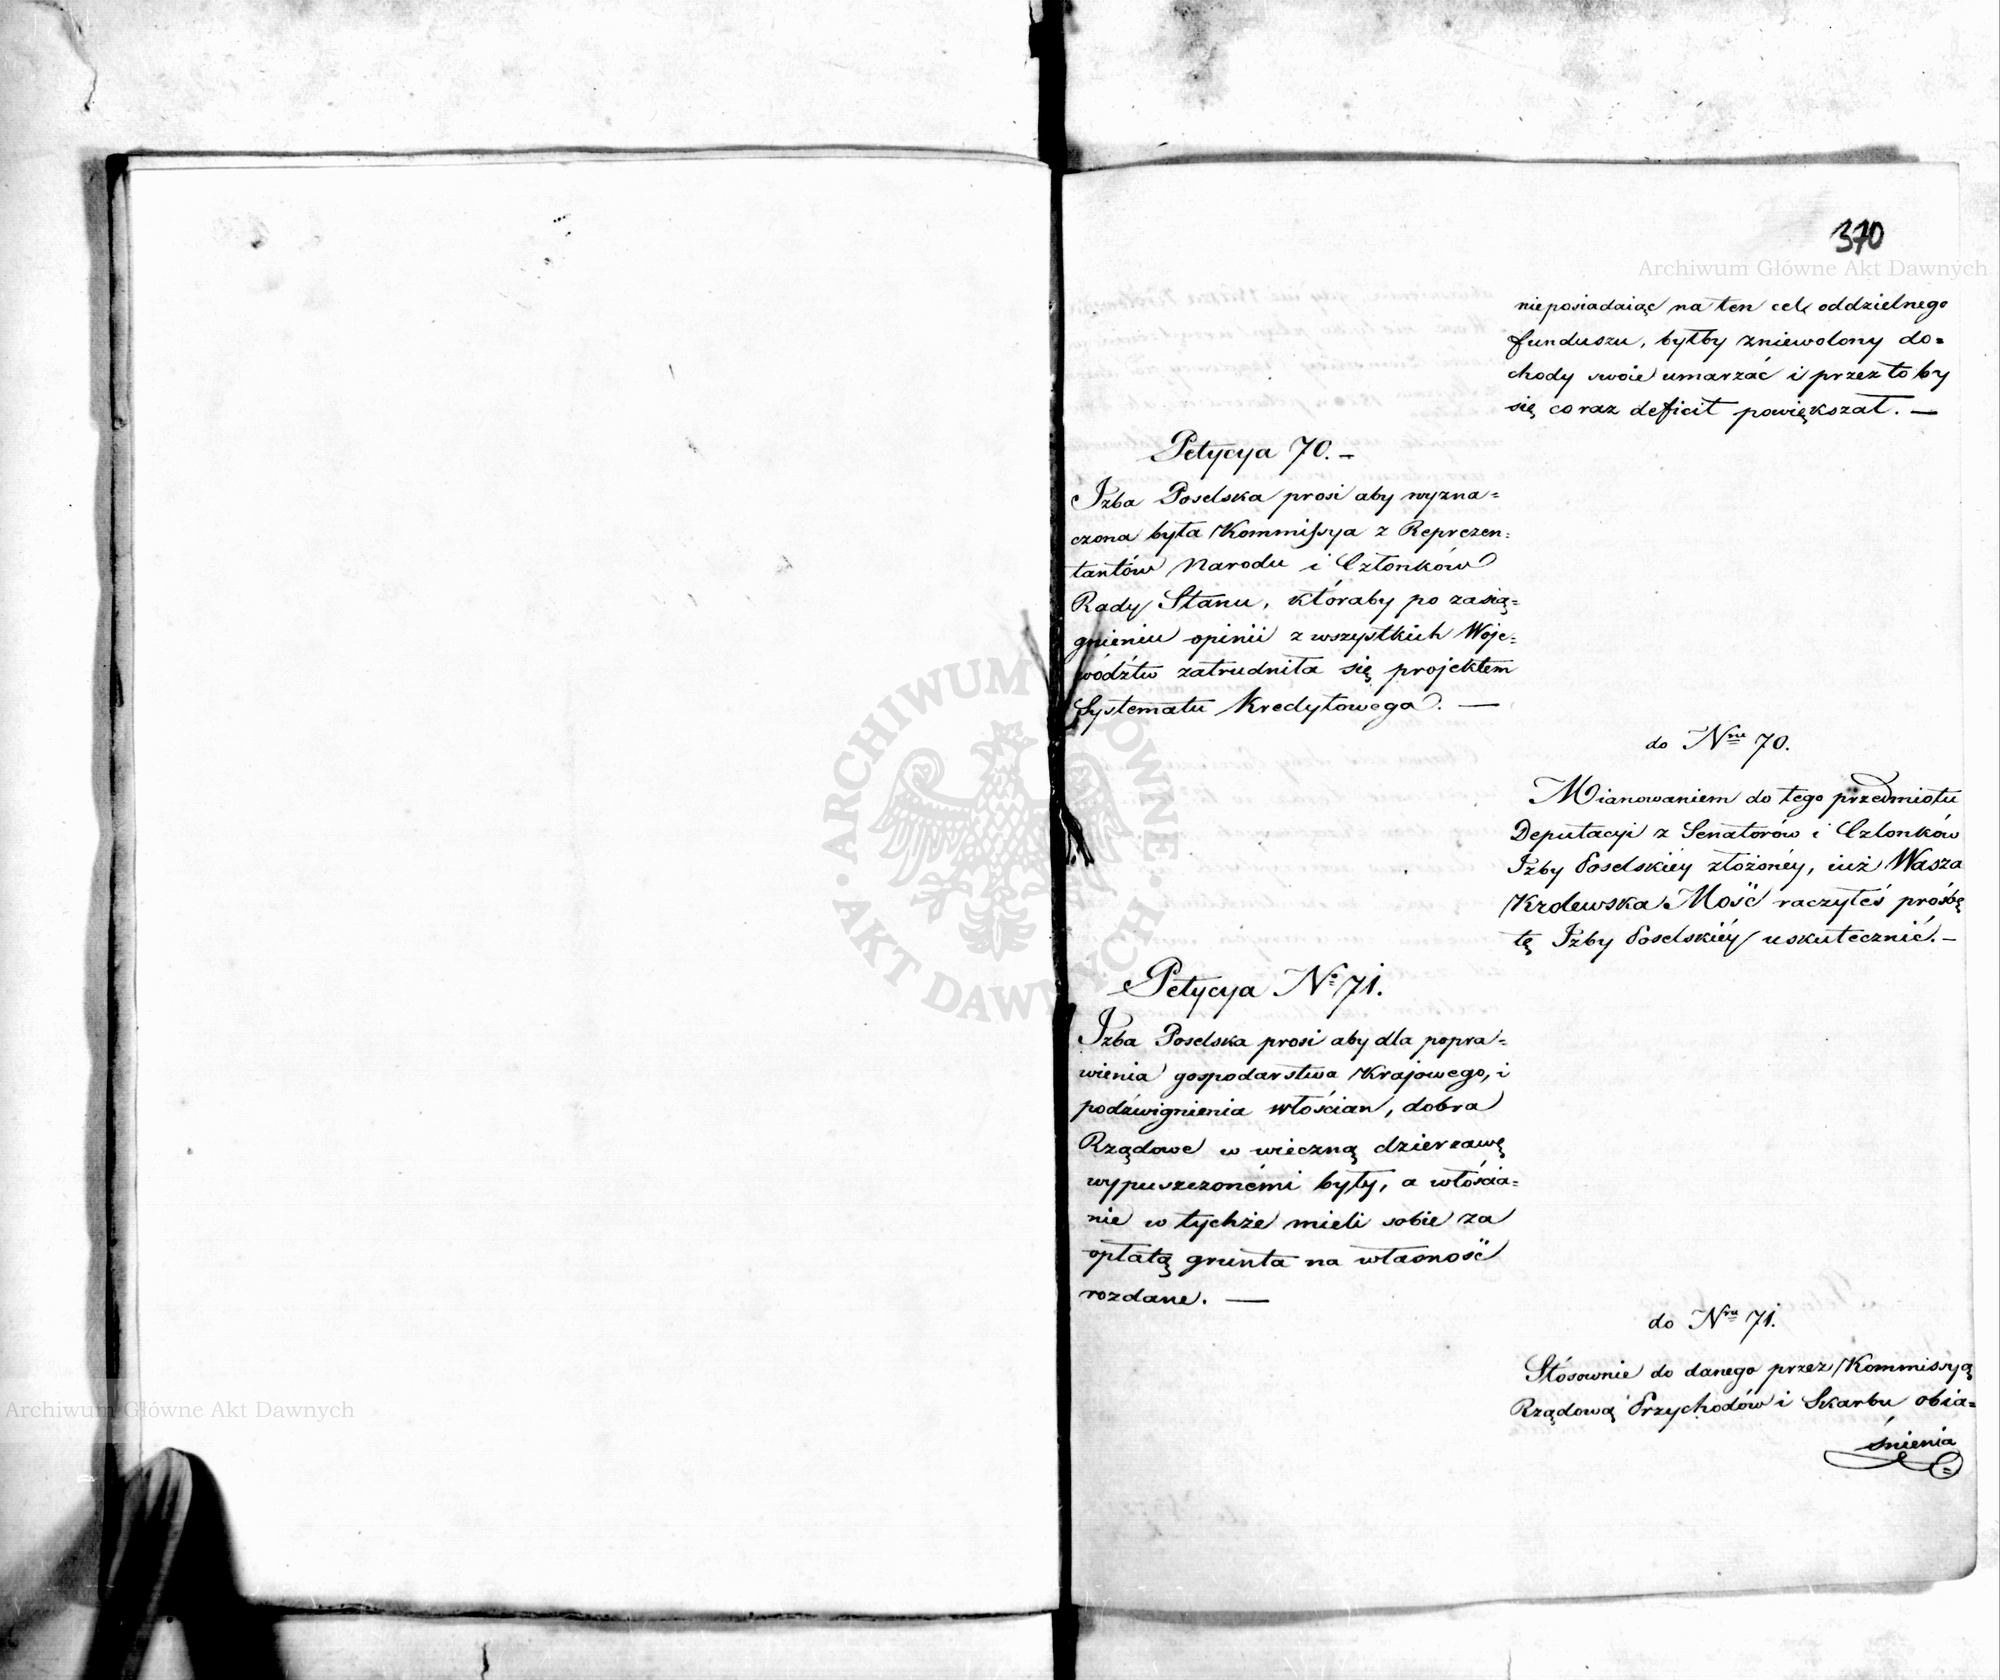 370
Archiwum Główne Akt Dawnych
nieposiadaiąc na ten cel oddzielnego
funduszu, byłby zniewolony do=
chody swoie umarzać i przez to by
się coraz deficit powiększał. —
Petycya 70. —
Izba Poselska prosi aby wyzna=
czona była Kommissya z Reprezen=
tantów Narodu i Członków
Rady Stanu, któraby po zasią=
gnieniu opinii z wszystkich Woje=
wództw zatrudniła się projektem
Systematu Kredytowego. —
do Nru 70.
Mianowaniem do tego przedmiotu
Deputacyi z Senatorów i Członków
Izby Poselskiéy złożonéy, iuż Wasza
Krolewska Mość raczyłeś prośbę
tę Izby Poselskiéy uskutecznić. —
Petycya No 71.
Izba Poselska prosi aby dla popra=
wienia gospodarstwa Krajowego, i
podźwignienia włościan, dobra
Rządowe w wieczną dzierzawę
wypuszczonémi były, a włościa=
nie w tychże mieli sobie za
opłatą grunta na własność
rozdane. —
do Nru 71.
Stósownie do danego przez Kommissyą
Rządową Przychodów i Skarbu obia=
śnienia
ARCHIWUM GŁÓWNE
AKT DAWNYCH
Archiwum Główne Akt Dawnych